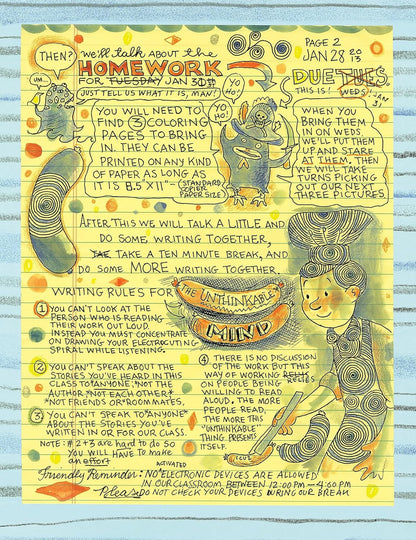 THEN?
UM...
we'll talk about the
HOMEWORK
FOR TUESDAY JAN 30
JUST TELL US WHAT IT IS, MAN!
YO HO!
YO HO!
PAGE 2
JAN 28 2013
DUE TUES.
THIS IS! WEDS! JAN 31
YOU WILL NEED TO
FIND 3 COLORING
PAGES TO BRING
IN. THEY CAN BE
PRINTED ON ANY KIND
OF PAPER AS LONG AS
IT IS 8.5" X 11"
(STANDARD
COPIER
PAPER SIZE)
WHEN YOU
BRING THEM
IN ON WEDS.
WE'LL PUT THEM
UP AND STARE
AT THEM. THEN
WE WILL TAKE
TURNS PICKING
OUT OUR NEXT
THREE PICTURES.
AFTER THIS WE WILL TALK A LITTLE AND
DO SOME WRITING TOGETHER,
TAE TAKE A TEN MINUTE BREAK, AND
DO SOME MORE WRITING TOGETHER.
WRITING RULES FOR
THE UNTHINKABLE
MIND
1 YOU CAN'T LOOK AT THE
PERSON WHO IS READING
THEIR WORK OUT LOUD.
INSTEAD YOU MUST CONCENTRATE
ON DRAWING YOUR ELECTROCUTING
SPIRAL WHILE LISTENING.
2 YOU CAN'T SPEAK ABOUT THE
STORIES YOU'VE HEARD IN THIS
CLASS TO ANYONE. *NOT THE
AUTHOR *NOT EACH OTHER
*NOT FRIENDS OR ROOMMATES.
3 YOU CAN'T SPEAK TO *ANYONE*
ABOUT THE STORIES YOU'VE
WRITTEN IN OR FOR OUR CLASS.
NOTE: #2+3 are hard to do SO
YOU WILL HAVE TO make
an effort
4 THERE IS NO DISCUSSION
OF THE WORK BUT THIS
WAY OF WORKING RELIES
ON PEOPLE BEING
WILLING TO READ
ALOUD. THE MORE
PEOPLE READ,
THE MORE THIS
"UNTHINKABLE"
THING PRESENTS
ITSELF.
Friendly Reminder: NO ACTIVATED ELECTRONIC DEVICES ARE ALLOWED
IN OUR CLASSROOM BETWEEN 12:00 PM – 4:00 PM
Please DO NOT CHECK YOUR DEVICES DURING OUR BREAK